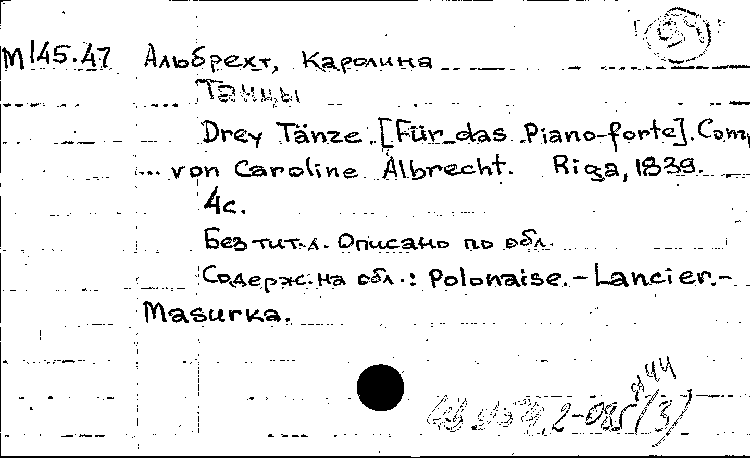 М145.47 Альбрехт, Каролина
Танцы
Drey Tänze. [Für das Piano-forte]. Comp
... von Caroline Albrecht. Riga, 1839.
4с.
Без тит.л. Описано по обл.
Содерж. на обл.: Polonaise.-Lancier.-
Masurka.